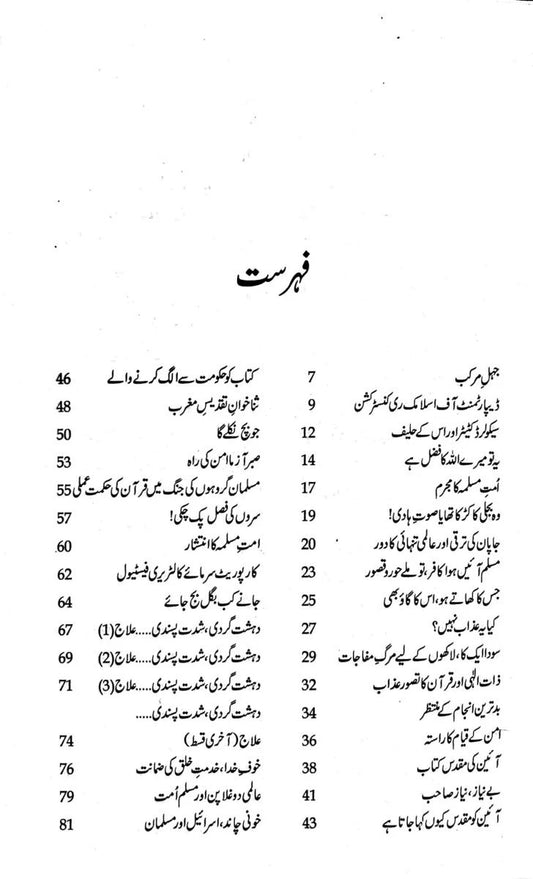 فہرست
جہلِ مرکب 7
ڈیپارٹمنٹ آف اسلامک ری کنسٹرکشن 9
سیکولر ڈکٹیٹر اور اس کے حلیف 12
یہ تو میرے اللہ کا فضل ہے 14
اُمتِ مسلمہ کا مجرم 17
وہ بجلی کا کڑکا تھا یا صوتِ ہادی! 19
جاپان کی ترقی اور عالمی تنہائی کا دور 20
مسلم آئیں ہوا کافر، تو ملے حور و قصور 23
جس کا کھاتے ہو، اس کا گاؤ بھی 25
کیا یہ عذاب نہیں؟ 27
سودا ایک کا، لاکھوں کے لیے مرگِ مفاجات 29
ذات الٰہی اور قرآن کا تصور عذاب 32
بدترین انجام کے منتظر 34
امن کے قیام کا راستہ 36
آئین کی مقدس کتاب 38
بے نیاز، نیاز صاحب 41
آئین کو مقدس کیوں کہا جاتا ہے 43
کتاب کو حکومت سے الگ کرنے والے 46
ثنا خوانِ تقدیسِ مغرب 48
جو بچ نکلے گا 50
صبر آزما امن کی راہ 53
مسلمان گروہوں کی جنگ میں قرآن کی حکمت عملی 55
سروں کی فصل پک چکی! 57
امتِ مسلمہ کا انتشار 60
کارپوریٹ سرمائے کا لٹریری فیسٹیول 62
جانے کب بگل بج جائے 64
دہشت گردی، شدت پسندی.....علاج (1) 67
دہشت گردی، شدت پسندی.....علاج (2) 69
دہشت گردی، شدت پسندی.....علاج (3) 71
دہشت گردی، شدت پسندی.....
علاج (آخری قسط) 74
خوفِ خدا، خدمتِ خلق کی ضمانت 76
عالمی دوغلا پن اور مسلم اُمت 79
خونی چاند، اسرائیل اور مسلمان 81